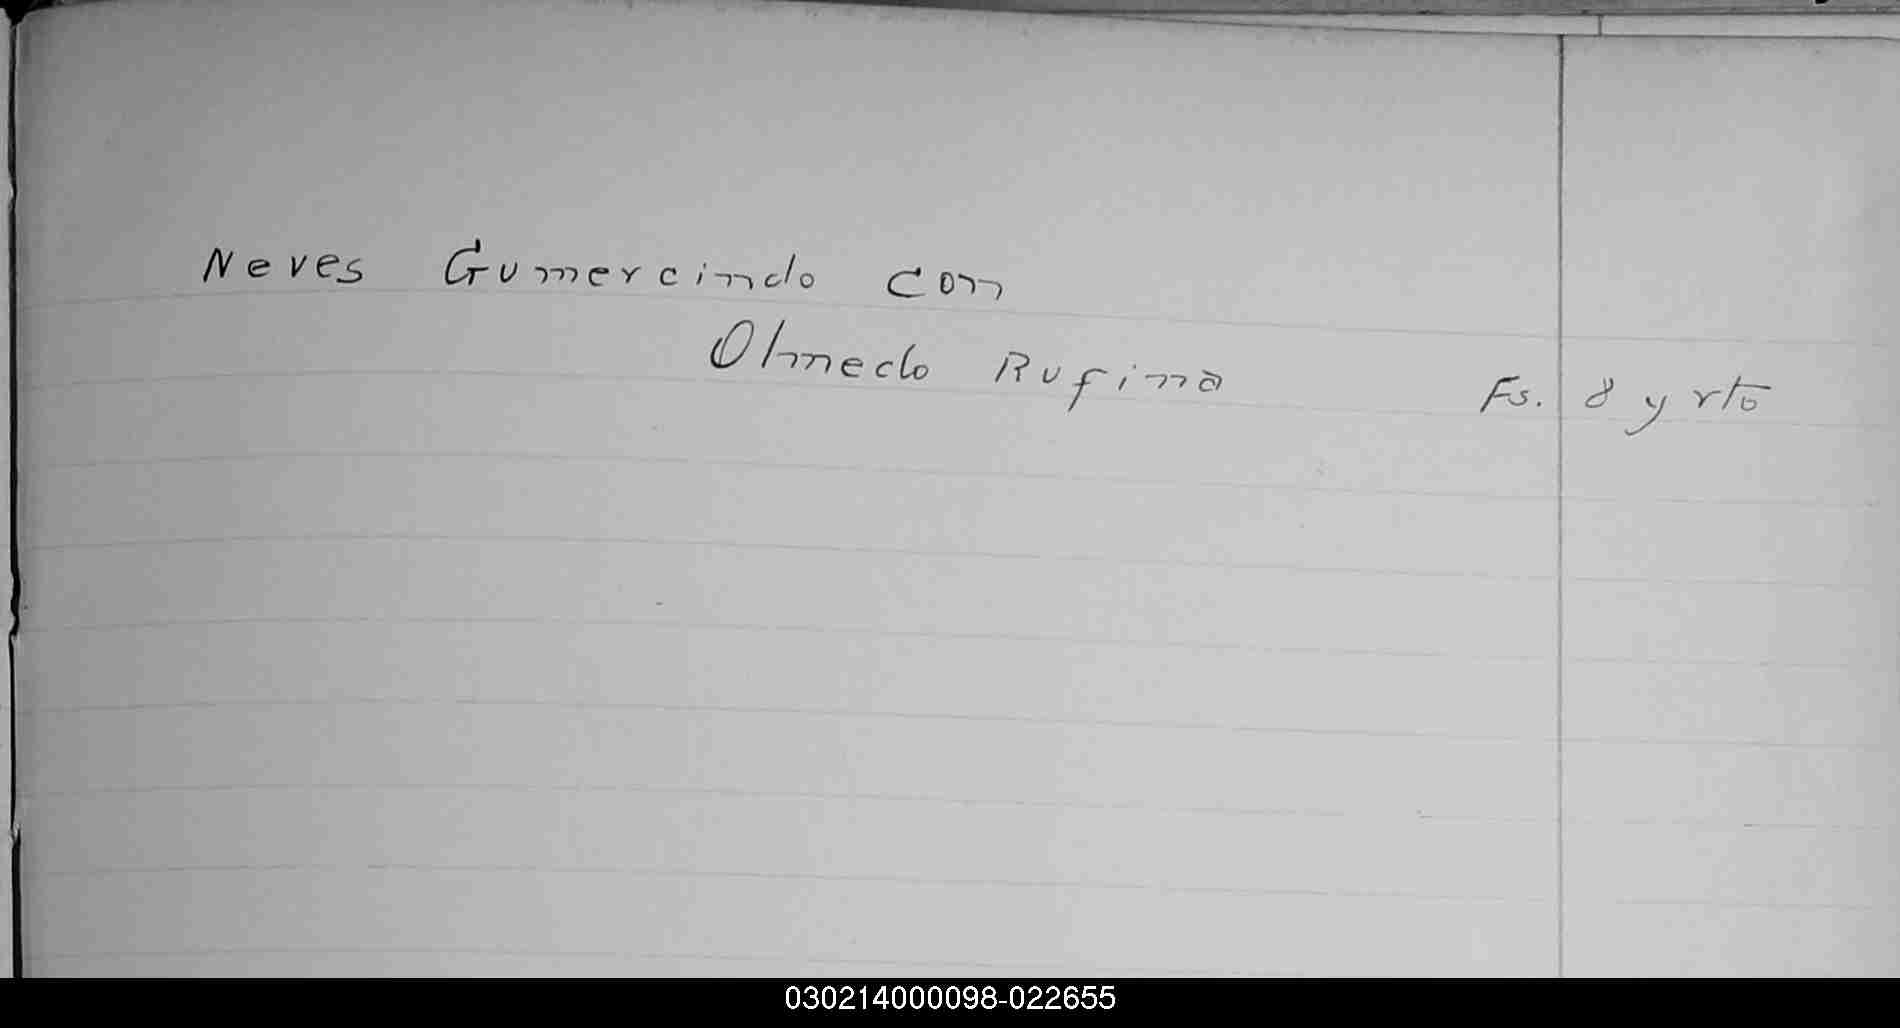 Neves Gumercindo con
Olmedo Rufina Fs. 8 y vto
030214000098-022655